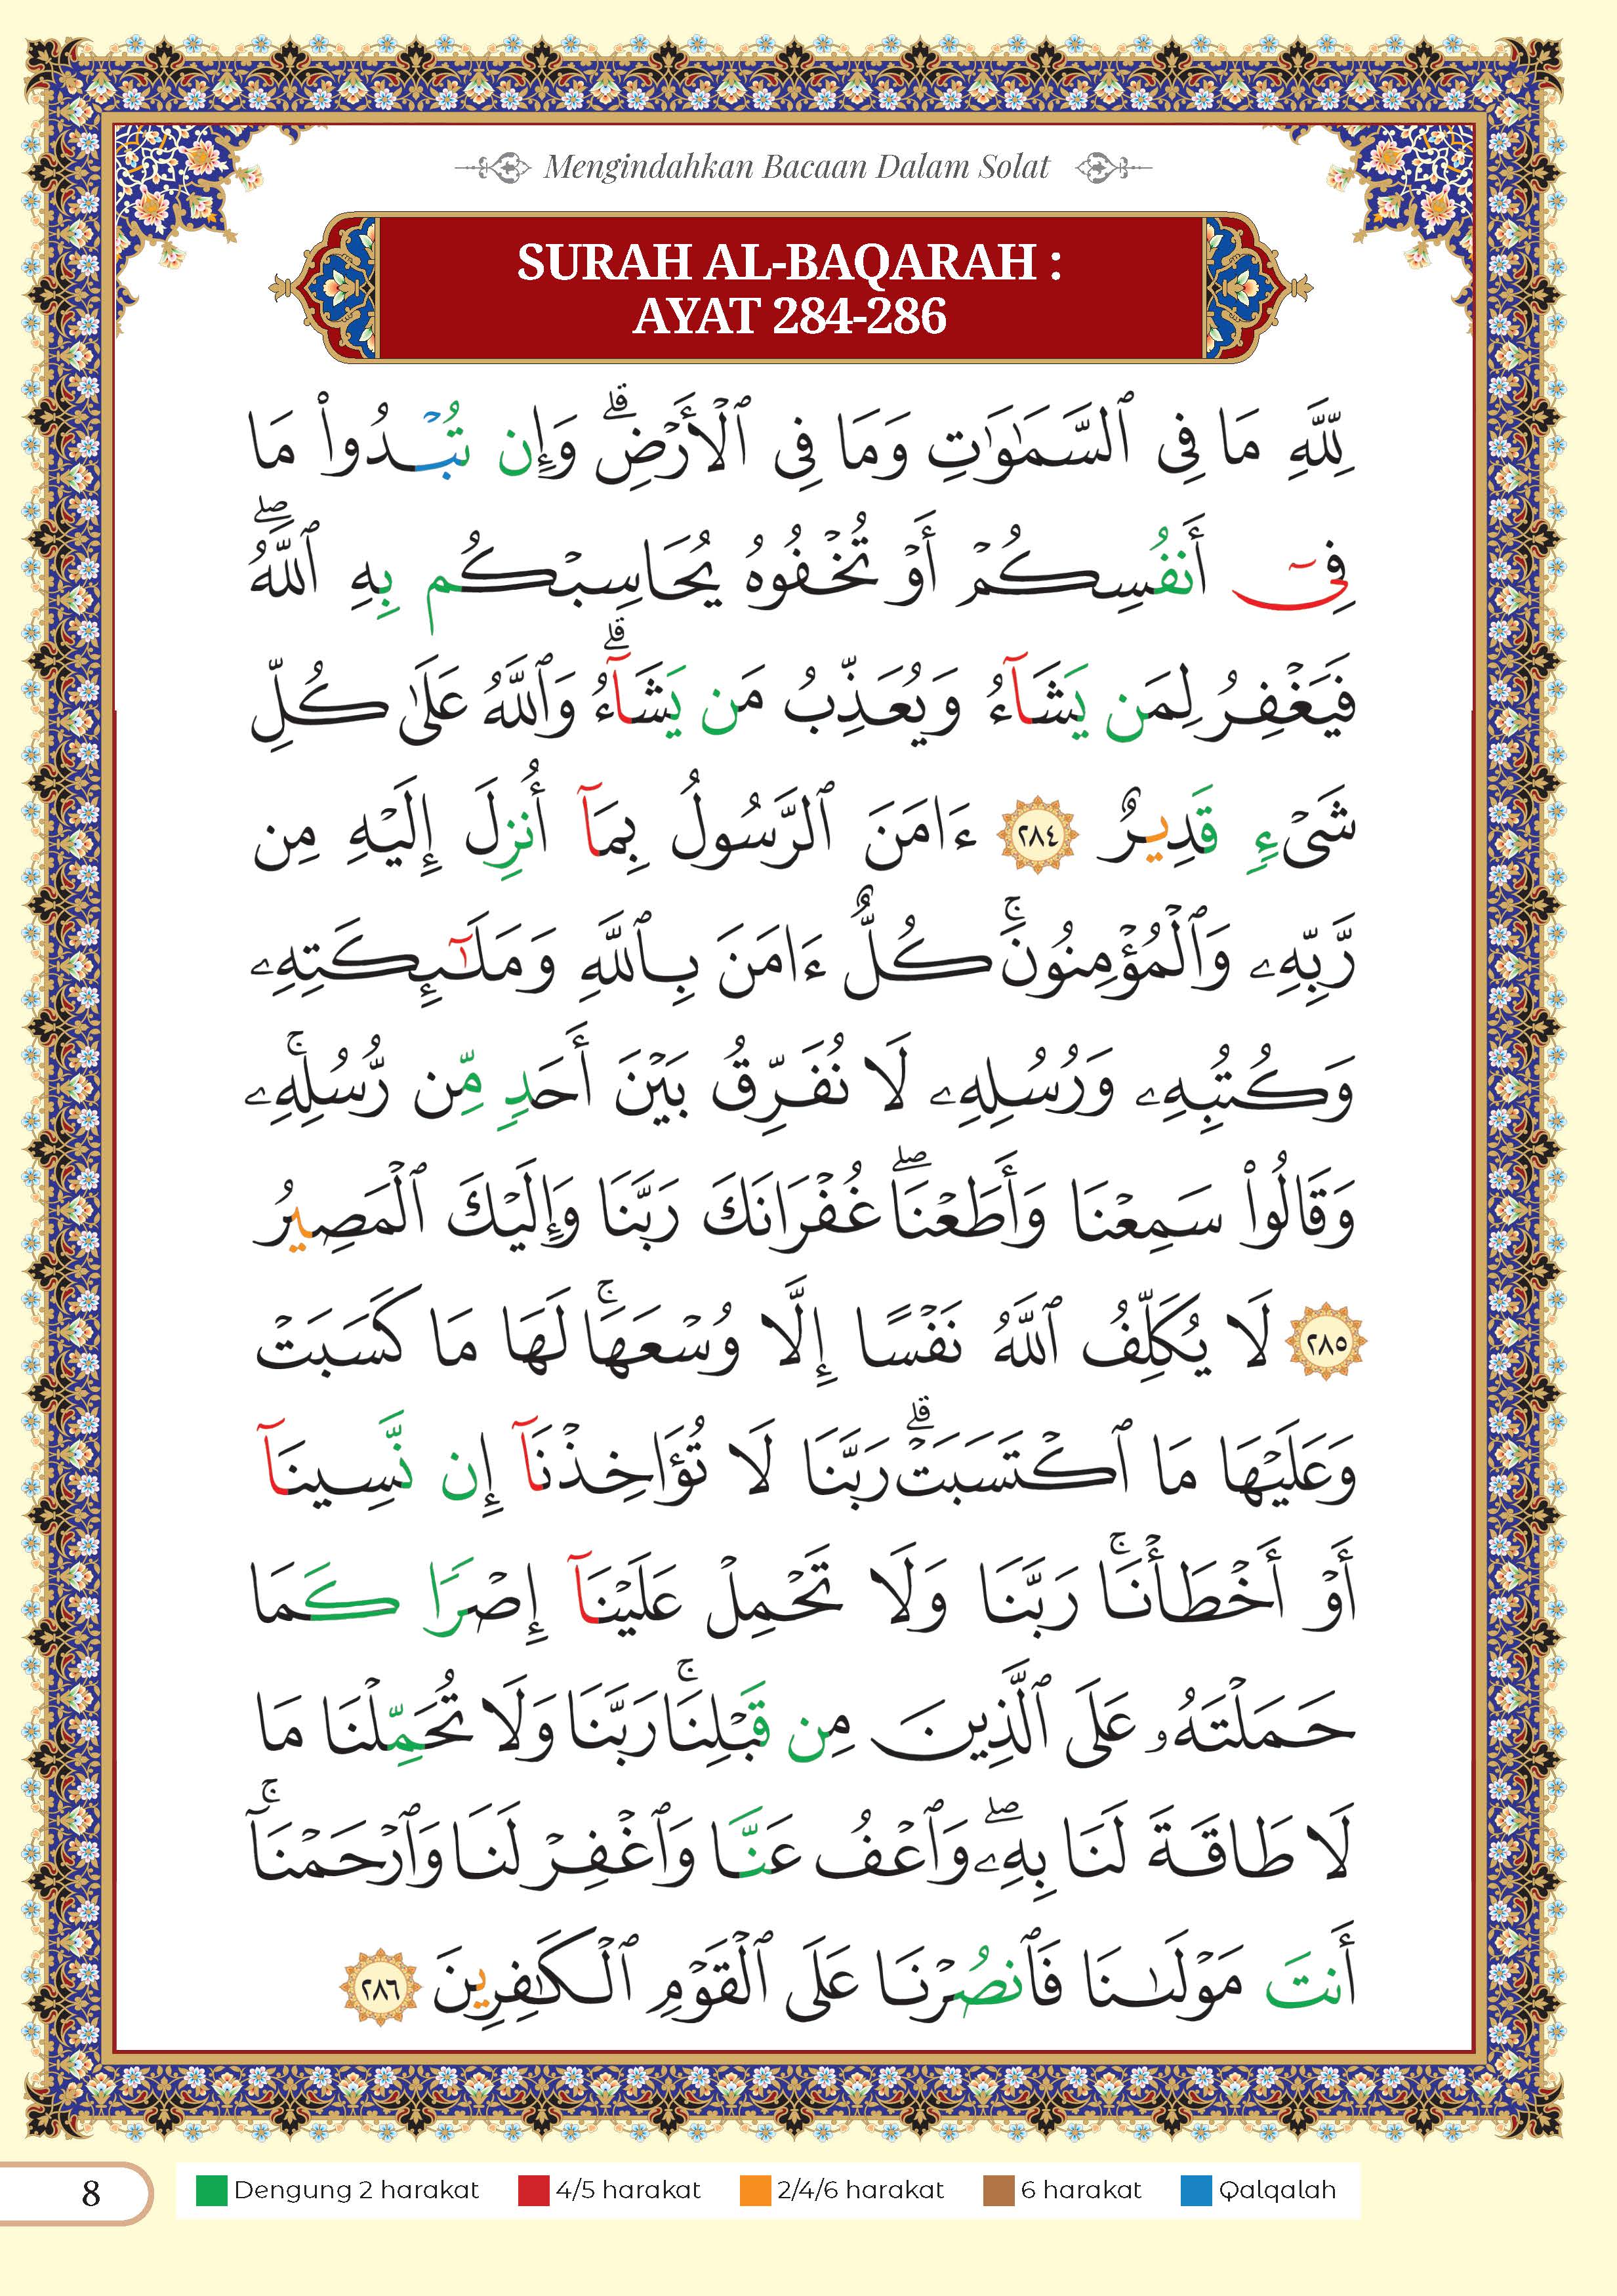 Mengindahkan Bacaan Dalam Solat
SURAH AL-BAQARAH :
AYAT 284-286
لِلَّهِ مَا فِى ٱلسَّمَٰوَٰتِ وَمَا فِى ٱلْأَرْضِ ۗ وَإِن تُبْدُوا۟ مَا
فِىٓ أَنفُسِكُمْ أَوْ تُخْفُوهُ يُحَاسِبْكُم بِهِ ٱللَّهُ ۖ
فَيَغْفِرُ لِمَن يَشَآءُ وَيُعَذِّبُ مَن يَشَآءُ ۗ وَٱللَّهُ عَلَىٰ كُلِّ
شَىْءٍ قَدِيرٌ ٢٨٤ ءَامَنَ ٱلرَّسُولُ بِمَآ أُنزِلَ إِلَيْهِ مِن
رَّبِّهِۦ وَٱلْمُؤْمِنُونَ ۚ كُلٌّ ءَامَنَ بِٱللَّهِ وَمَلَٰٓئِكَتِهِۦ
وَكُتُبِهِۦ وَرُسُلِهِۦ لَا نُفَرِّقُ بَيْنَ أَحَدٍ مِّن رُّسُلِهِۦ ۚ
وَقَالُوا۟ سَمِعْنَا وَأَطَعْنَا ۖ غُفْرَانَكَ رَبَّنَا وَإِلَيْكَ ٱلْمَصِيرُ
٢٨٥ لَا يُكَلِّفُ ٱللَّهُ نَفْسًا إِلَّا وُسْعَهَا ۚ لَهَا مَا كَسَبَتْ
وَعَلَيْهَا مَا ٱكْتَسَبَتْ ۗ رَبَّنَا لَا تُؤَاخِذْنَآ إِن نَّسِينَآ
أَوْ أَخْطَأْنَا ۚ رَبَّنَا وَلَا تَحْمِلْ عَلَيْنَآ إِصْرًا كَمَا
حَمَلْتَهُۥ عَلَى ٱلَّذِينَ مِن قَبْلِنَا ۚ رَبَّنَا وَلَا تُحَمِّلْنَا مَا
لَا طَاقَةَ لَنَا بِهِۦ ۖ وَٱعْفُ عَنَّا وَٱغْفِرْ لَنَا وَٱرْحَمْنَآ ۚ
أَنتَ مَوْلَىٰنَا فَٱنصُرْنَا عَلَى ٱلْقَوْمِ ٱلْكَٰفِرِينَ ٢٨٦
8 Dengung 2 harakat 4/5 harakat 2/4/6 harakat 6 harakat Qalqalah